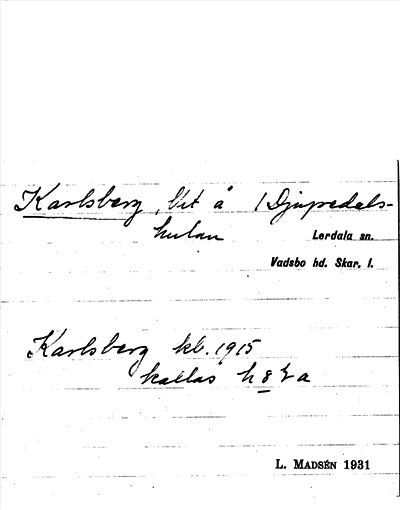 Karlsberg, lht å 1 Djupedals-
hulan
Lerdala sn.
Vadsbo hd. Skar. l.
Karlsberg kb. 1915
kallas
L. MADSÉN 1931